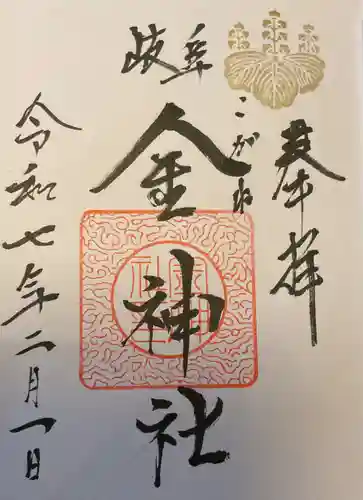 奉拝
岐阜
こがね
金神社
令和七年二月一日